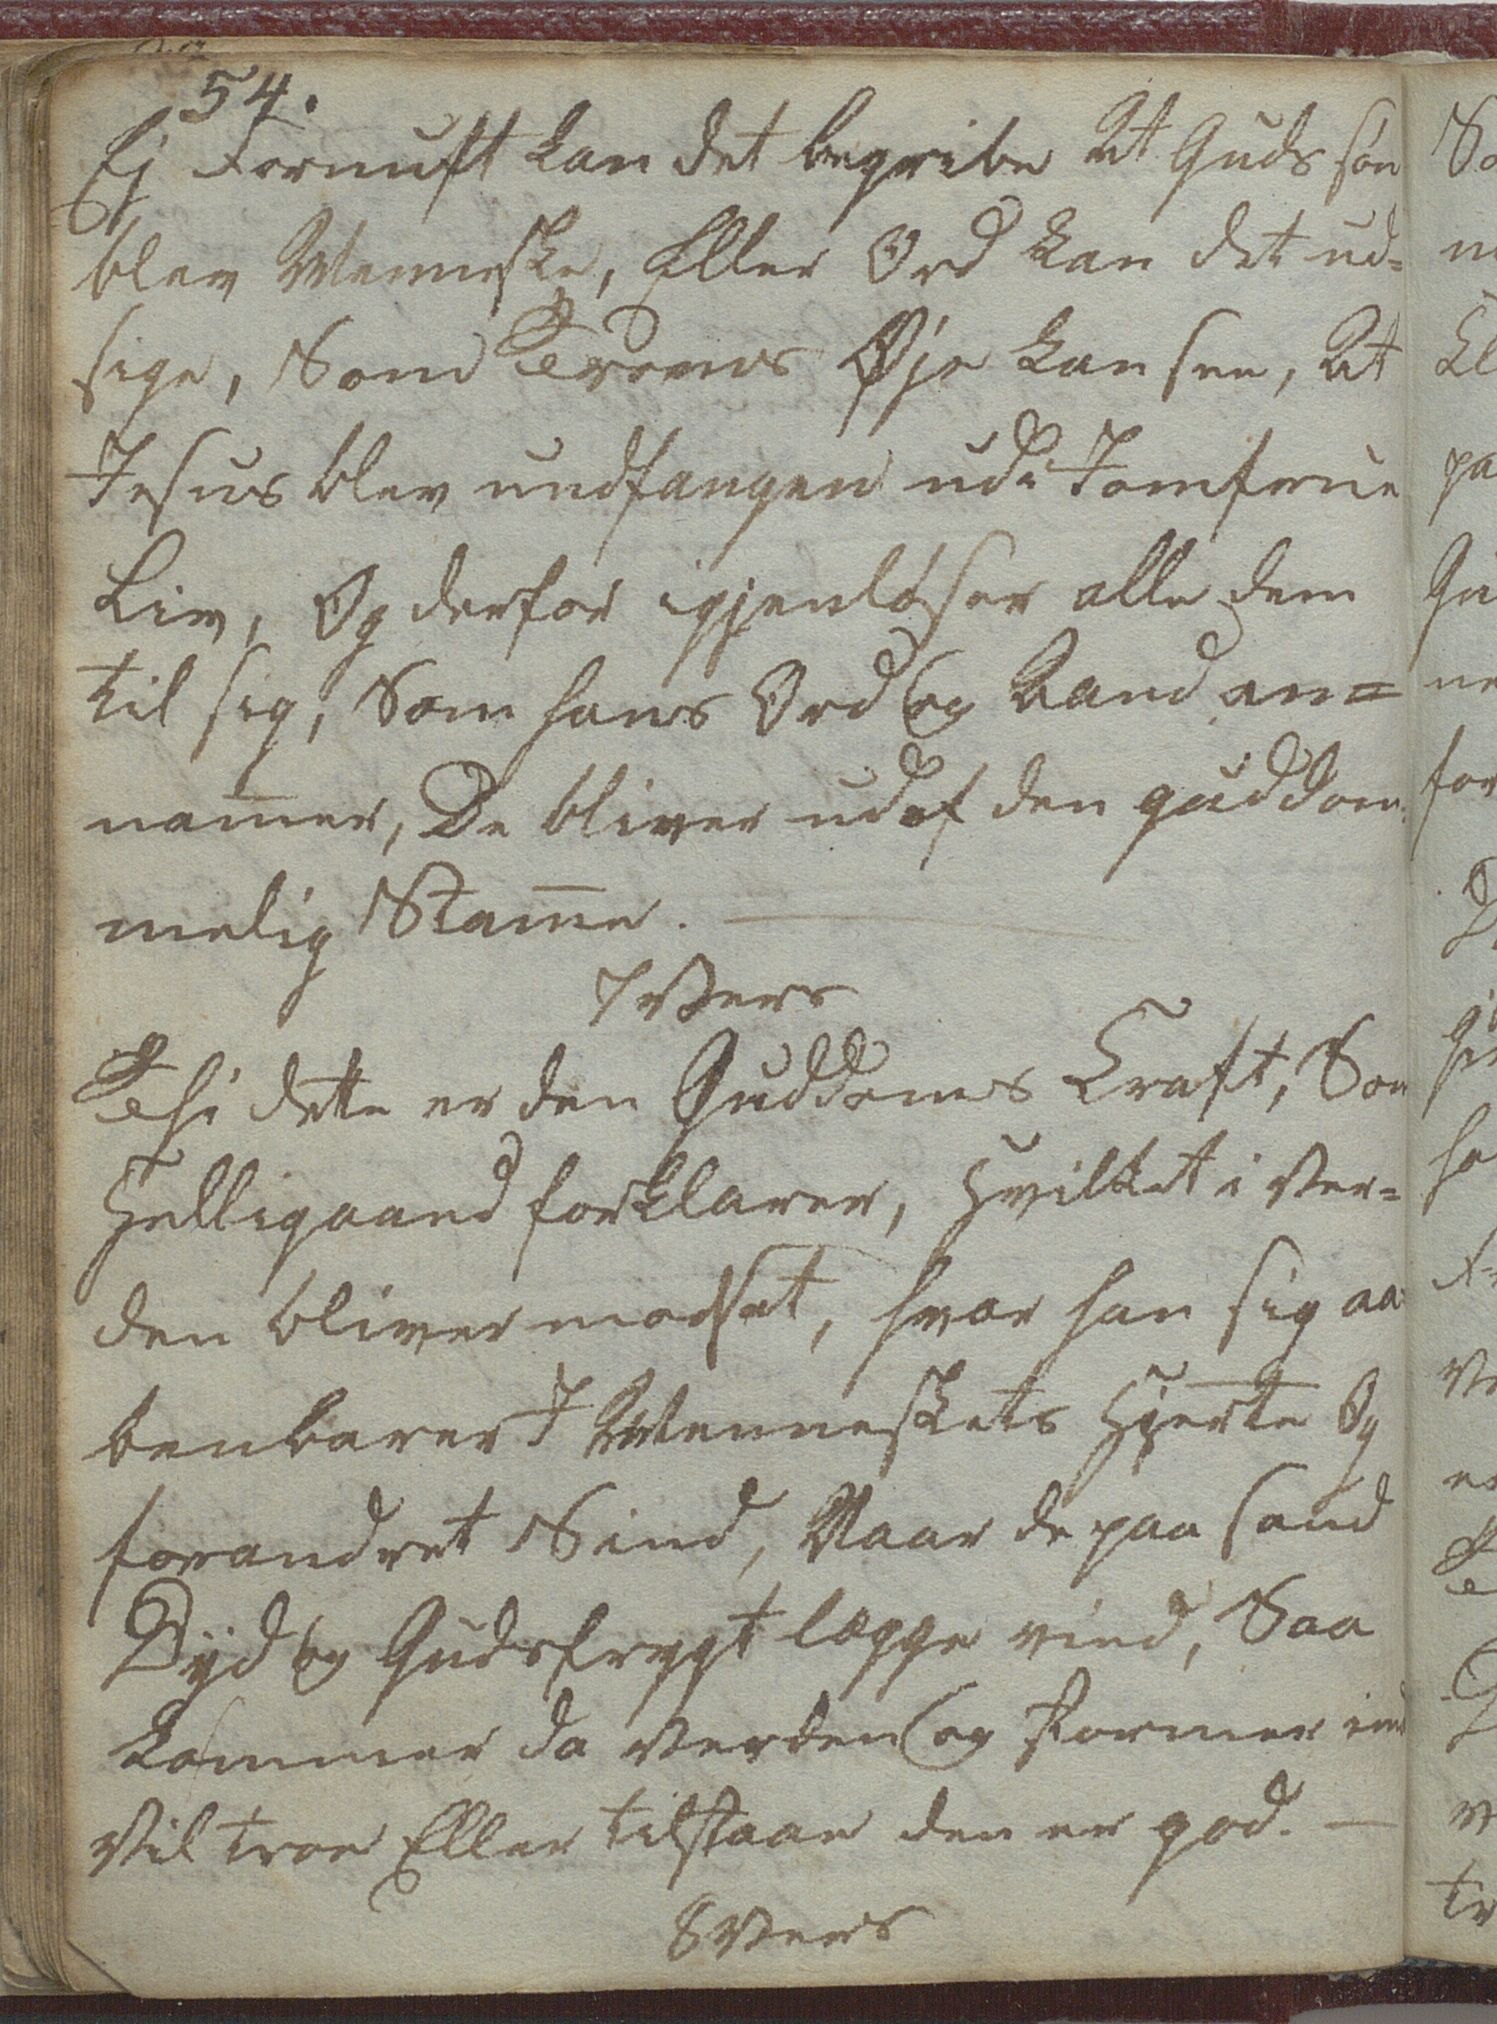 54.
Ej Fornuft kan det begribe At Guds søn
blev Menneske, Eller Ord kan det ud=
sige, Som Troens Øje kan see, At
Jesus blev undfangen udi Jomfrue
Liv, Og derfor igjenløser alle dem
til sig, Som hans Ord og Aand an=
nam̄er, De bliver ud af den guddom=
melig Stam̄e.
7 Vers
Thi dette er den Guddoms Kraft, Som
Helligaand forklarer, Hvilket i Ver=
den bliver modsat, hvor han sig aa=
benbarer I Menneskets Hjerte Og
forandret Sind, Naar de paa sand
Dyd og Gudsfrygt lægge vind, Saa
kommer da Verden og stormer ind
Vil troe Eller tilstaae den er god. —
8 Vers